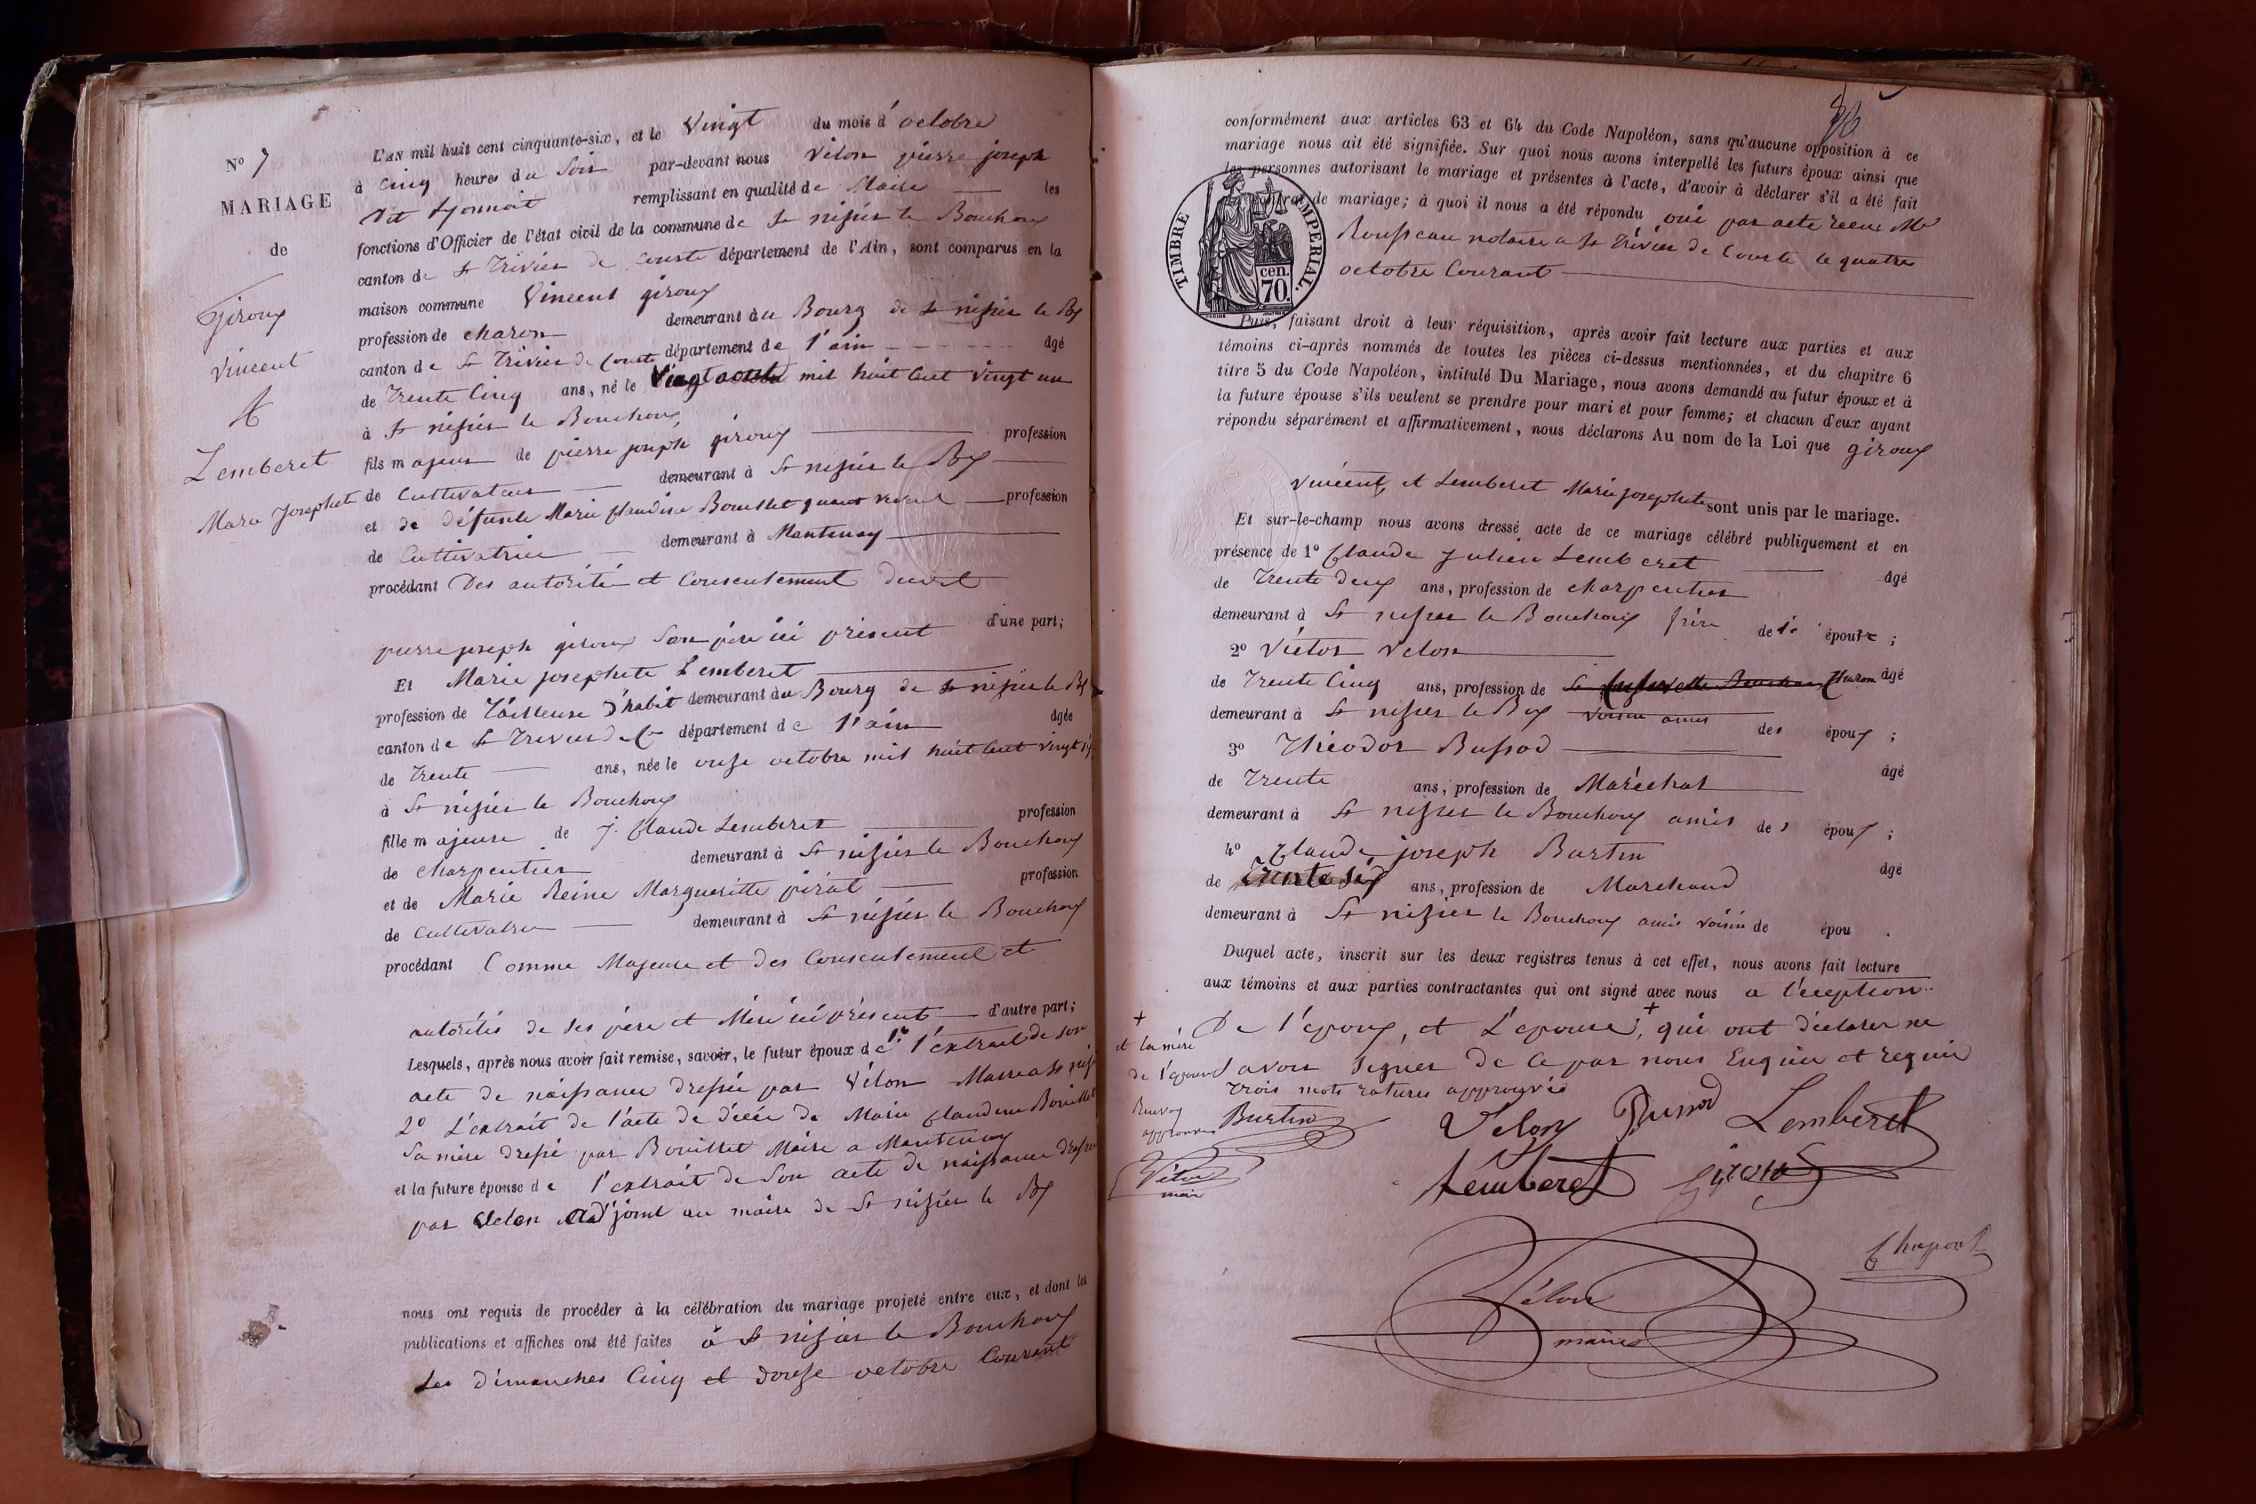 N° 7
MARIAGE
de
Giroux
Vincent
&
Lemberet
Marie Josephete
L'an mil huit cent cinquante-six, et le Vingt du mois d'octobre
à cinq heures du Soir par-devant nous Vélon pierre joseph
dit remplissant en qualité de Maire les
fonctions d'Officier de l'état civil de la commune de St nizier le Bouchoux
canton de St Trivier de Courte département de l'Ain, sont comparus en la
maison commune Vincent giroux
profession de charon demeurant au Bourg de St nizier le Bx
canton de St Trivier de Courte département de l'ain âgé
de Trente Cinq ans, né le Vingt mil huit Cent vingt un
à St nizier le Bouchoux
fils majeur de pierre joseph giroux profession
de Cultivateur demeurant à St nizier le Bx
et de défunte Marie Claudine Bouillet quant vivait profession
de Cultivatrice demeurant à Mantenay
procédant Des autorité et Consentement dudit
pierre joseph giroux Son père ici présent d'une part;
Et Marie josephete Lemberet
profession de Tailleuse d'habit demeurant au Bourg de St nizier le Bx
canton de St Trivier de C département de l'ain âgée
de Trente ans, née le onze octobre mil huit Cent vingt six
à St nizier le Bouchoux
fille majeure de j. Claude Lemberet profession
de Charpentier demeurant à St nizier le Bouchoux
et de Marie Reine Margueritte pirat profession
de Cultivatrice demeurant à St nizier le Bouchoux
procédant Comme Majeure et des Consentement et
autorités de ses père et Mère ici présent d'autre part;
Lesquels, après nous avoir fait remise, savoir, le futur époux de 1° l'extrait de son
acte de naissance dressé par Vélon Maire a St nizi
2° L'extrait de l'acte de décée de Marie Claudine Bouillet
Sa mère dressé par Bouillet Maire a Mantenay
et la future épouse de l'extrait de Son acte de naissance dressé
par Velon Adjoint au maire de St nizier le Bx
nous ont requis de procéder à la célébration du mariage projeté entre eux, et dont les
publications et affiches ont été faites à St nizier le Bouchoux
Les dimanches Cinq et douze octobre Courant
conformément aux articles 63 et 64 du Code Napoléon, sans qu'aucune opposition à ce
mariage nous ait été signifiée. Sur quoi nous avons interpellé les futurs époux ainsi que
les personnes autorisant le mariage et présentes à l'acte, d'avoir à déclarer s'il a été fait
contrat de mariage; à quoi il nous a été répondu oui par acte recu Me
Rousseau notaire a St Trivier de Courte le quatre
octobre Courant
TIMBRE IMPERIAL.
70 cen.
Puis, faisant droit à leur réquisition, après avoir fait lecture aux parties et aux
témoins ci-après nommés de toutes les pièces ci-dessus mentionnées, et du chapitre 6
titre 5 du Code Napoléon, intitulé Du Mariage, nous avons demandé au futur époux et à
la future épouse s'ils veulent se prendre pour mari et pour femme; et chacun d'eux ayant
répondu séparément et affirmativement, nous déclarons Au nom de la Loi que giroux
Vincent, et Lemberet Marie josephete sont unis par le mariage.
Et sur-le-champ nous avons dressé acte de ce mariage célébré publiquement et en
présence de 1° Claude Julien Lemberet âgé
de Trente deux ans, profession de charpentier
demeurant à St nizier le Bouchoux frère de l' épouse;
2° Victor Velon
de Trente Cinq ans, profession de Charon âgé
demeurant à St nizier le Bx voisin amis des époux;
3° Théodor Bussod
de Trente ans, profession de Maréchal âgé
demeurant à St nizier le Bouchoux amis des époux;
4° Claude joseph Burtin
de trente six ans, profession de Marchand âgé
demeurant à St nizier le Bouchoux amis voisin de épou .
Duquel acte, inscrit sur les deux registres tenus à cet effet, nous avons fait lecture
aux témoins et aux parties contractantes qui ont signé avec nous a l'eception
De l'epoux, et L'epouse, + qui ont déclarer ne
avoir Signer de Ce par nous Enquie et requie
+ et la mère
de l'epouse
trois mots raturés approuvés
Renvoy
approuvé
Burtin
Velon Bussod Lemberet
Vélon
maire
Lemberet giroux
Chapout
Vélon
maire